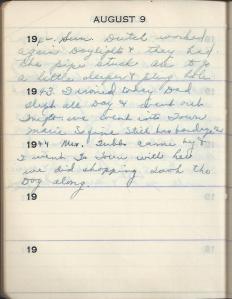 AUGUST 9
19 Sun. Dutch worked
again Daylight & they had
the pipe stuck so
a little deeper & plug hole
1943 I ironed today Dad
slept all Day & went out
we went into Town
Marie has
1944 Mrs. Tubbs came by &
I went to Town with her
we did shopping took the
Dog along.
19
19